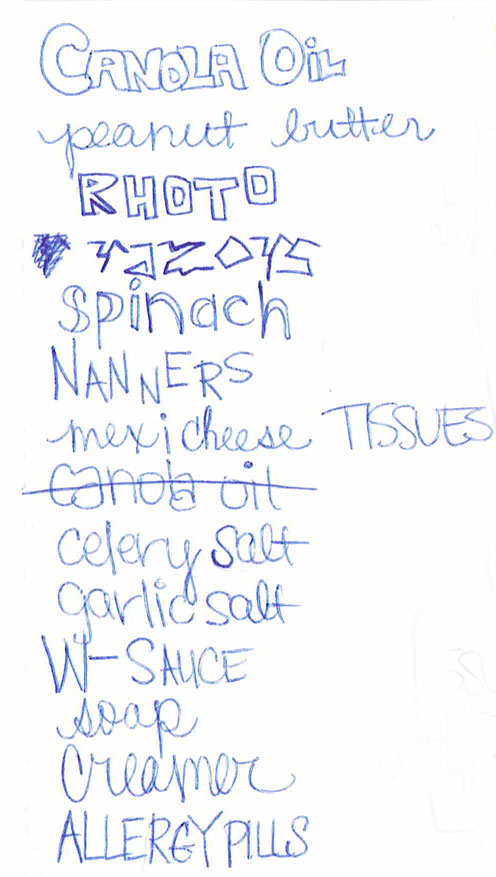 CANOLA OIL
peanut butter
RHOTO
razors
Spinach
NANNERS
mexicheese TISSUES
canola oil
celery salt
garlic salt
W-SAUCE
soap
Creamer
ALLERGY PILLS